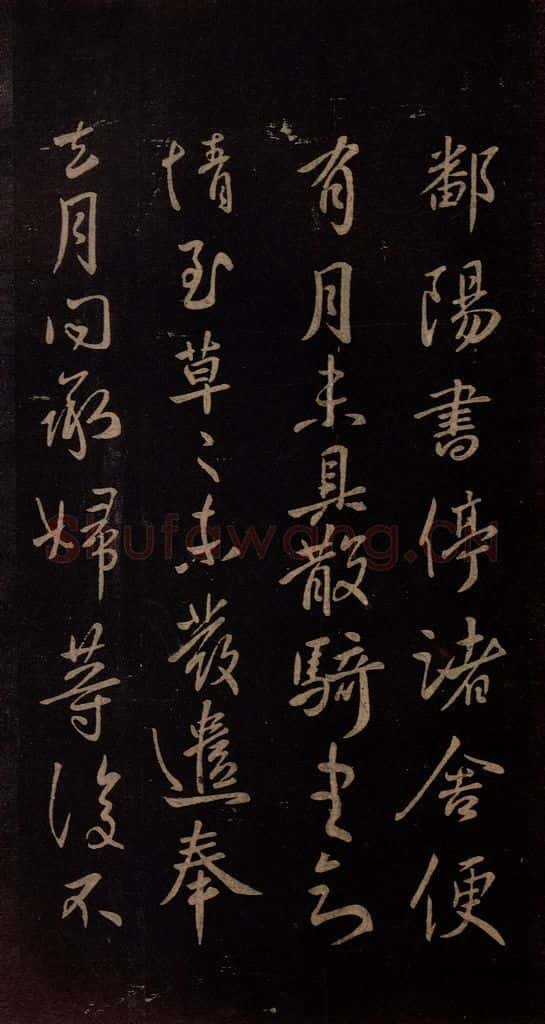 鄱陽書停諸舍便
有月未具散騎書
情至草〻未發遣奉
去月問承婦等復不
Shufawang.cn